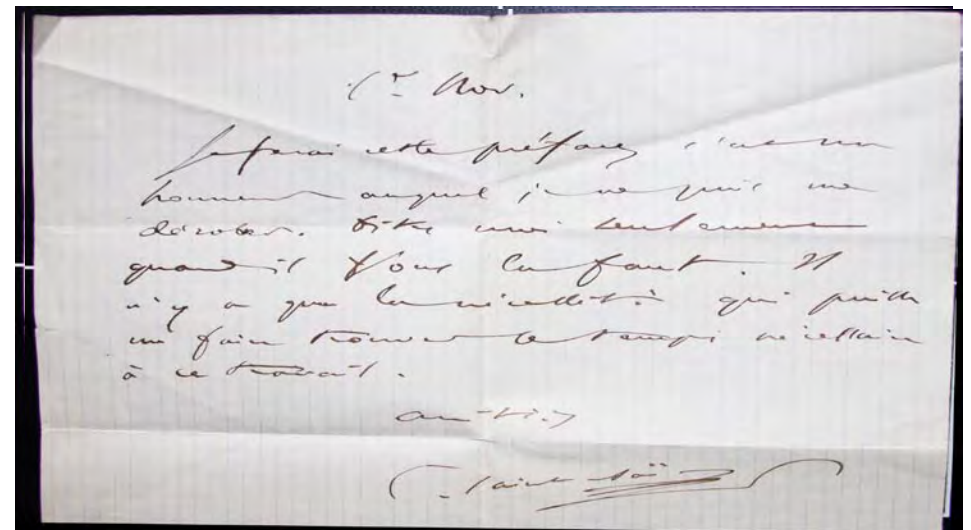 1er Nov.
Je ferai cette préface, c'est un
honneur auquel je ne puis me
dérober. Dites moi seulement
quand il vous la faut. Il
n'y a que la nécessité qui puisse
me faire trouver le temps nécessaire
à ce travail.
amitiés
C. Saint-Saëns